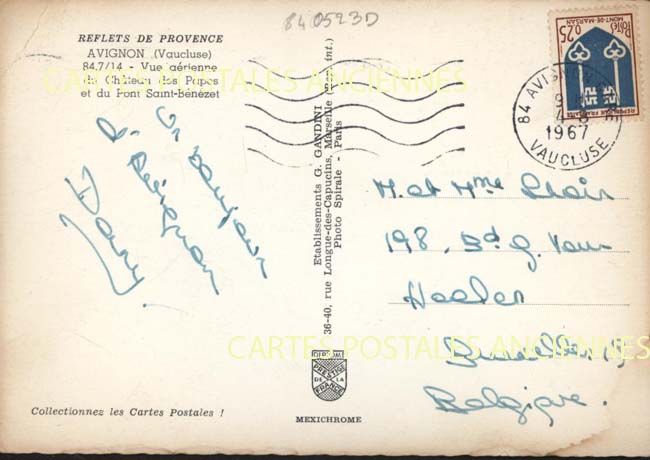 84 0523D
REFLETS DE PROVENCE
AVIGNON (Vaucluse)
84.7/14 - Vue aérienne
du Château des Papes
et du Pont Saint-Bénézet
CARTES POSTALES ANCIENNES
Un bonjour
d'Avignon
Dany
Etablissements G. GANDINI
36-40, rue Longue-des-Capucins, Marseille (Rep. int.)
Photo Spirale - Paris
0,25
Postes
MONT-DE-MARSAN
REPUBLIQUE FRANÇAISE
84 AVIGNON
1967
VAUCLUSE
M. et Mme
198, Bd G. Van
Haelen
Bruxelles 19
Belgique.
CARTES POSTALES ANCIENNES
PRESTIGE
DE LA
FRANCE
Collectionnez les Cartes Postales !
MEXICHROME